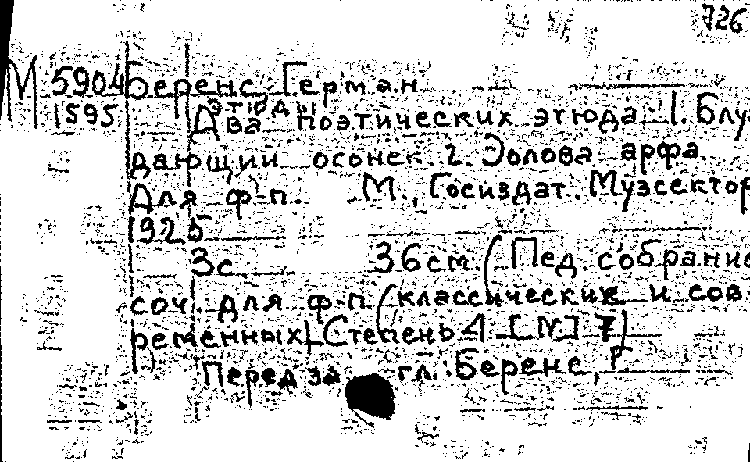 726
М 5904 Беренс, Герман
1595 этюды
Два поэтических этюда: 1. Блуж-
дающий огонек. 2. Эолова арфа.
Для ф-п. М., Госиздат. Музсектор
1925
3с. 36см (Пед собрание
соч. для ф-п (классических и сов-
ременных) Степень 4 [N] 7)
Перед загл.: Беренс, Г.